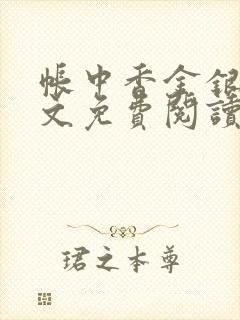 帳中香金銀
文免費閱讀
珺之本尊